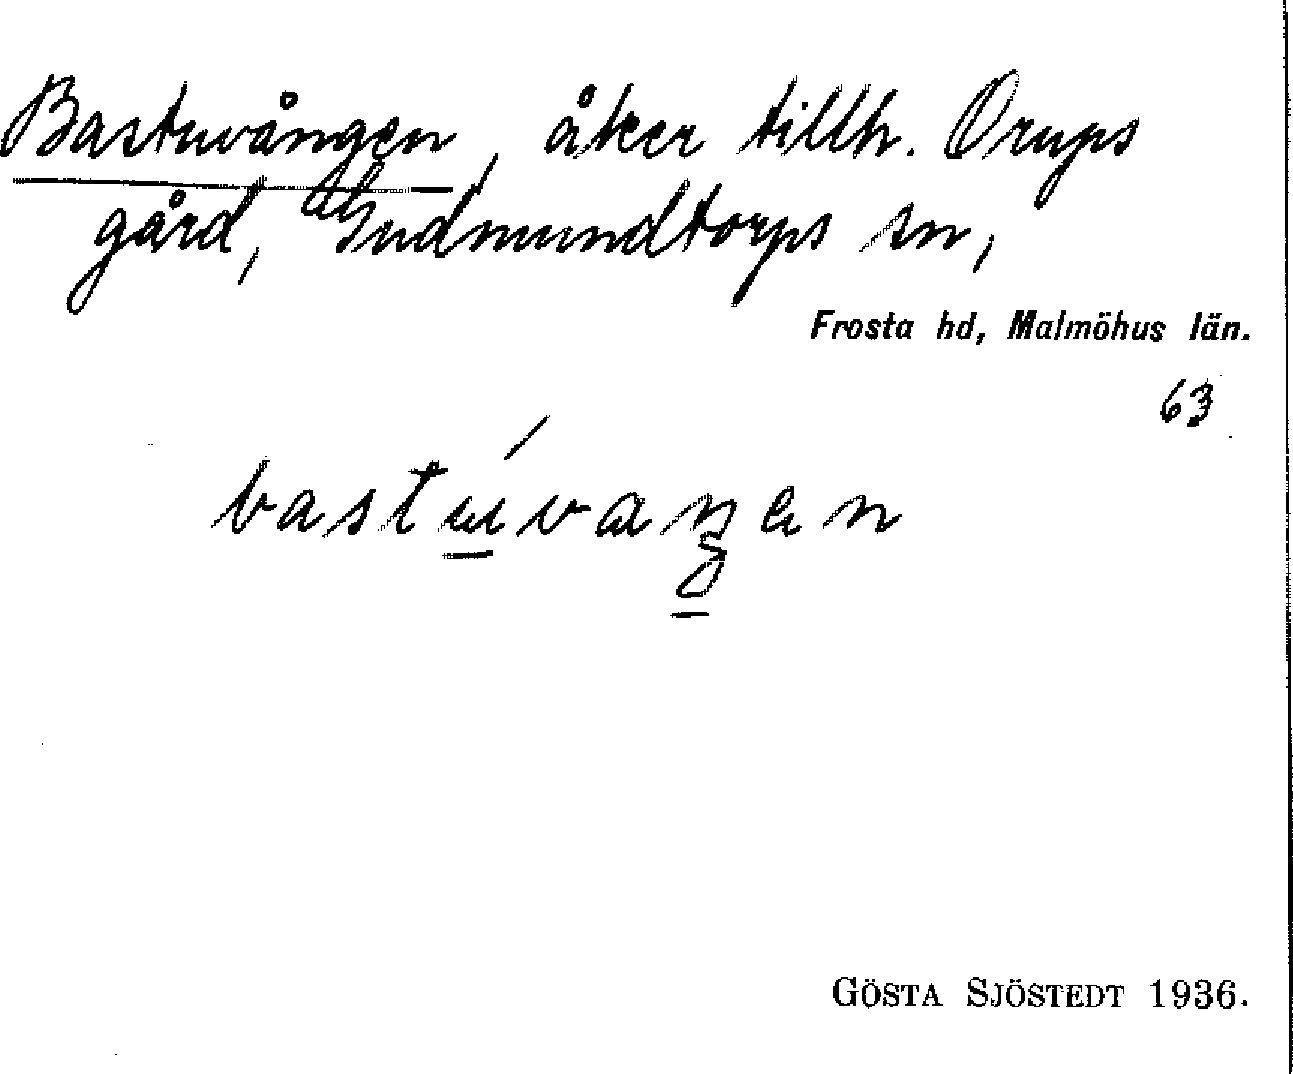 Bastuvången, åker tillh. Orups
gård, Gudmundtorps sn,
Frosta hd, Malmöhus län.
63
GÖSTA SJÖSTEDT 1936.